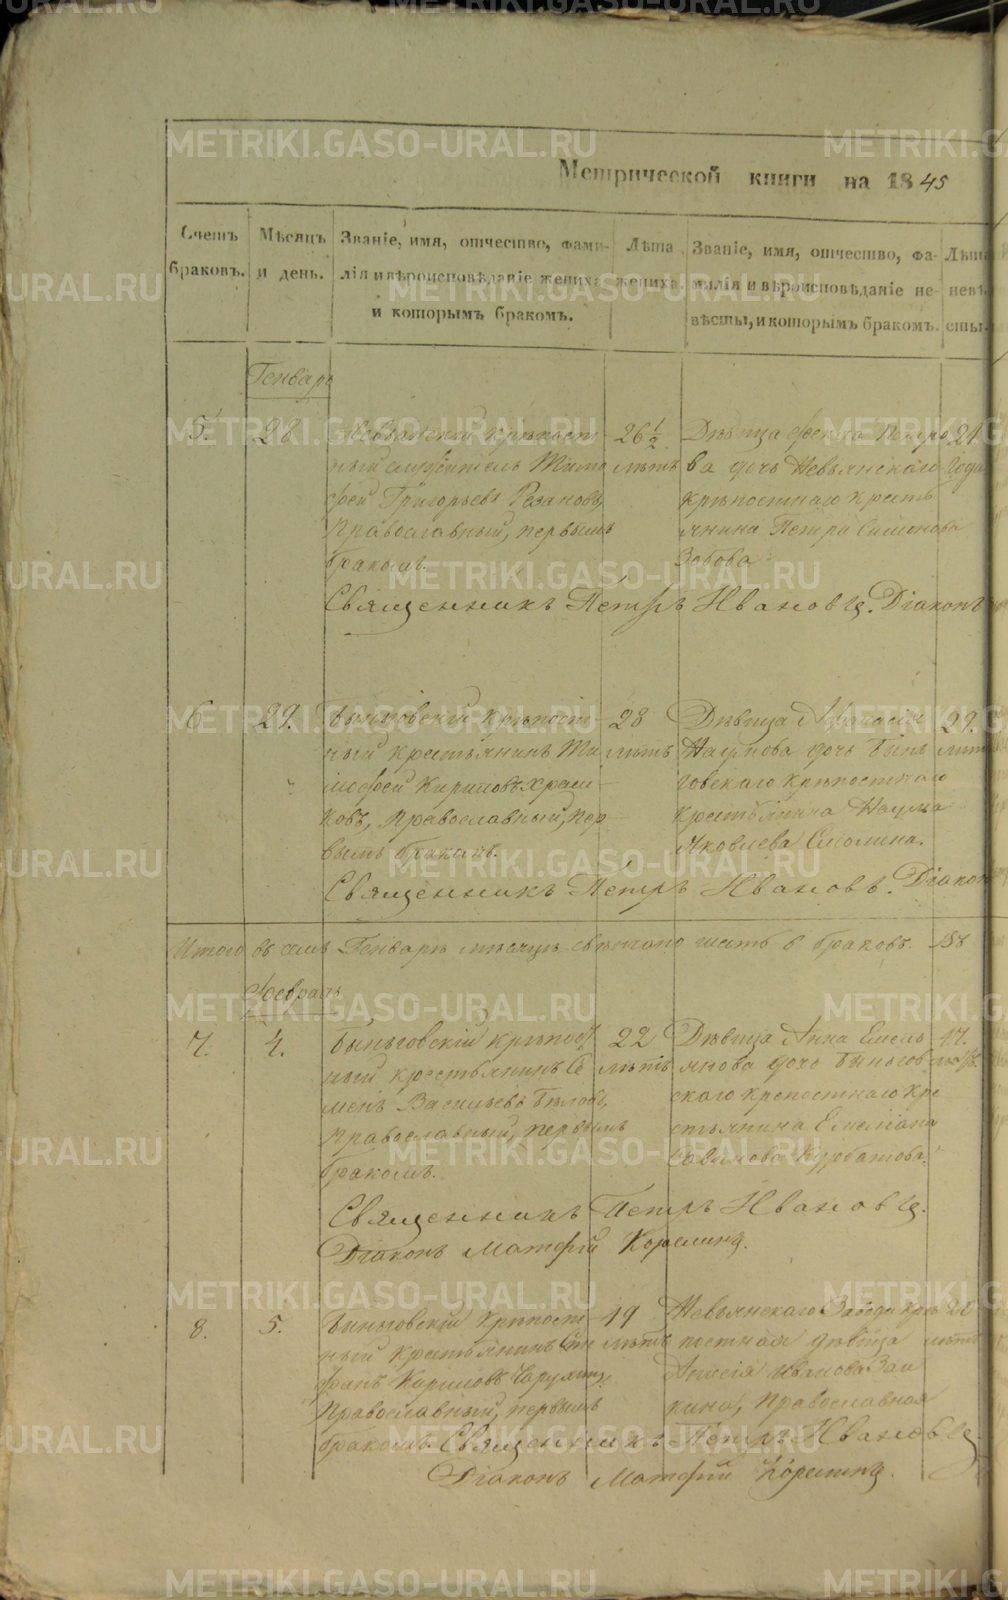 METRIKI.GASO-URAL.RU
Метрической книги на 1845
Счетъ браковъ.
Мѣсяцъ и день.
Званіе, имя, отчество, фами-
лія и вѣроисповѣданіе жениха
и которымъ бракомъ.
Лѣта
жениха.
Званіе, имя, отчество, фа-
милія и вѣроисповѣданіе не-
вѣсты, и которымъ бракомъ.
Лѣта
невѣ-
сты.
Генварь
5.
28
крѣпост
ный служитель Тимо
фей Григорьевъ Резановъ,
Православный, первымъ
бракомъ.
26 1/2
лѣтъ
Дѣвица Петро
ва дочь Невьянскаго
крѣпостнаго кресть
янина Петра Симонова
Зобова
21
года
Священникъ Петръ Ивановъ. Діаконъ
6
29.
крѣпост
ный крестьянинъ Ти
мофей Кириловъ
ковъ, Православный, пер
вымъ бракомъ.
28
лѣтъ
Дѣвица Афанасія
Наумова дочь Бынь
говскаго крѣпостнаго
крестьянина Наума
Яковлева Смолина.
29.
лѣтъ
Священникъ Петръ Ивановъ. Діаконъ
Итого въ семъ Генварѣ мѣсяцѣ шесть 6 браковъ.
Февраль
7.
4.
Быньговскій крѣпост
ный крестьянинъ Се
менъ Васильевъ Бѣловъ,
Православный, первымъ
бракомъ.
22
лѣтъ
Дѣвица Анна Емель
янова дочь Быньгов
скаго крепостнаго кре
стьянина Емеліана
Курбатова.
17.
Священникъ Петръ Ивановъ.
Діаконъ Матфій Корелинъ.
8.
5.
Быньговскій крѣпост
ный крестьянинъ Сте
фанъ Кириловъ
Православный, первымъ
бракомъ.
19
лѣтъ
Невьянскаго Завода крѣ
постная дѣвица
Анисія Иванова Заи
кина, Православная
22
лѣтъ
Священникъ Петръ Ивановъ.
Діаконъ Матфій Корелинъ.